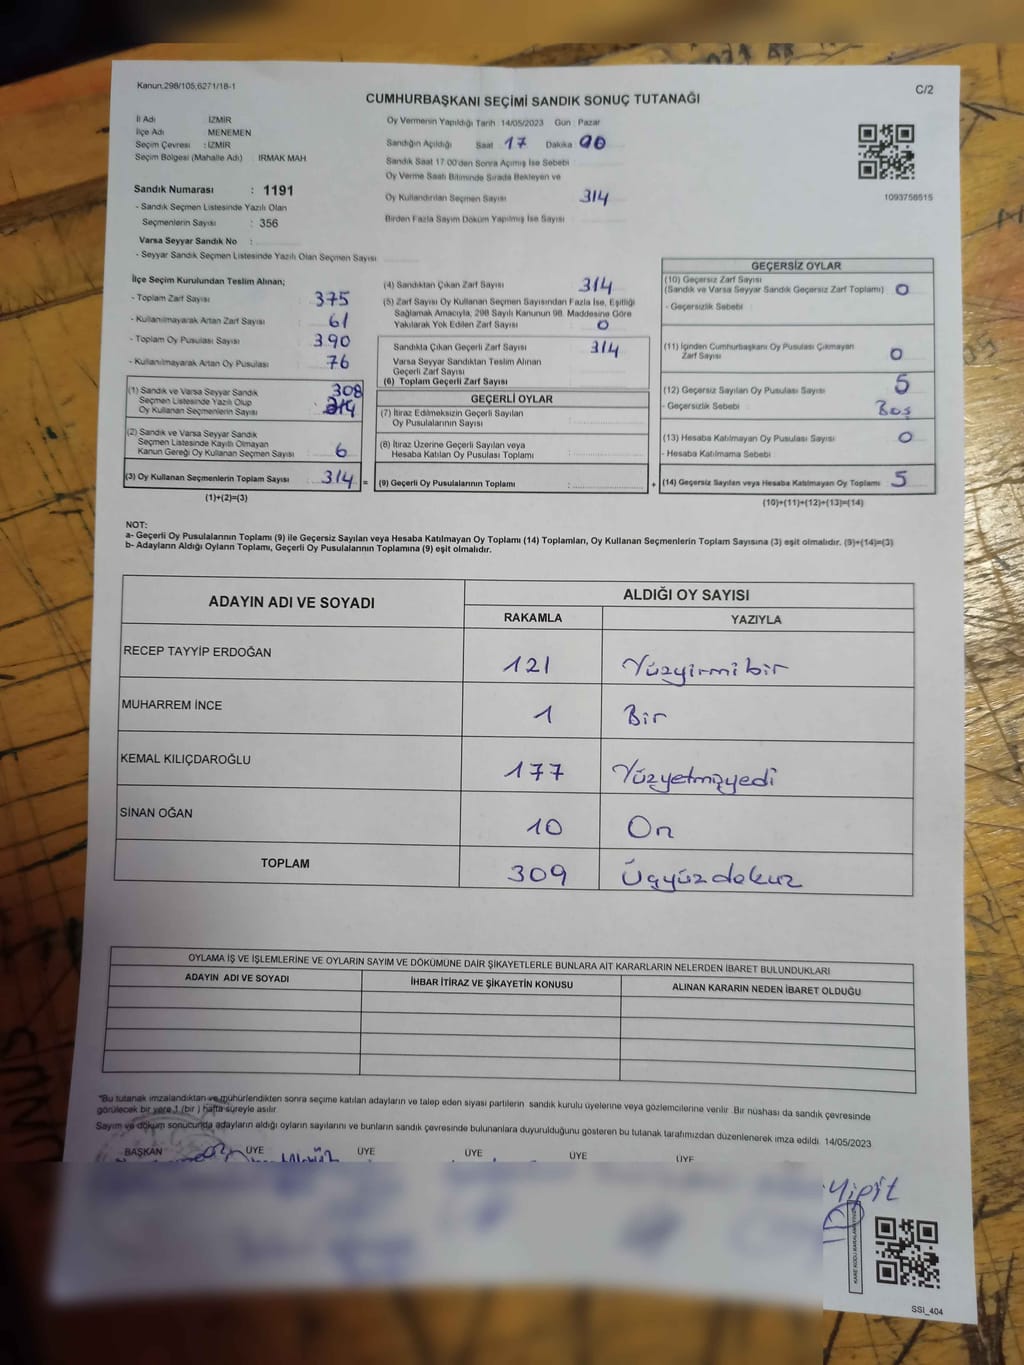 Kanun:298/105;6271/18-1
C/2
CUMHURBAŞKANI SEÇİMİ SANDIK SONUÇ TUTANAĞI
İl Adı İZMİR
İlçe Adı MENEMEN
Seçim Çevresi : İZMİR
Seçim Bölgesi (Mahalle Adı) : IRMAK MAH.
Sandık Numarası : 1191
- Sandık Seçmen Listesinde Yazılı Olan
Seçmenlerin Sayısı : 356
Varsa Seyyar Sandık No :
- Seyyar Sandık Seçmen Listesinde Yazılı Olan Seçmen Sayısı
Oy Vermenin Yapıldığı Tarih :14/05/2023 Gün : Pazar
Sandığın Açıldığı Saat 17 Dakika 00
Sandık Saat 17.00'den Sonra Açımış İse Sebebi
Oy Verme Saati Bitiminde Sırada Bekleyen ve
Oy Kullandırılan Seçmen Sayısı 314
Birden Fazla Sayım Döküm Yapılmış İse Sayısı :
1093756515
İlçe Seçim Kurulundan Teslim Alınan;
- Toplam Zarf Sayısı 375
- Kullanılmayarak Artan Zarf Sayısı 61
- Toplam Oy Pusulası Sayısı 390
- Kullanılmayarak Artan Oy Pusulası 76
(1) Sandık ve Varsa Seyyar Sandık 308
Seçmen Listesinde Yazılı Olup
Oy Kullanan Seçmenlerin Sayısı 314
(2) Sandık ve Varsa Seyyar Sandık
Seçmen Listesinde Kayıtlı Olmayan
Kanun Gereği Oy Kullanan Seçmen Sayısı : 6
(3) Oy Kullanan Seçmenlerin Toplam Sayısı : 314 =
(1)+(2)=(3)
(4) Sandıktan Çıkan Zarf Sayısı 314
(5) Zarf Sayısı Oy Kullanan Seçmen Sayısından Fazla İse, Eşitliği
Sağlamak Amacıyla, 298 Sayılı Kanunun 98. Maddesine Göre
Yakılarak Yok Edilen Zarf Sayısı : 0
Sandıkta Çıkan Geçerli Zarf Sayısı 314
Varsa Seyyar Sandıktan Teslim Alınan
Geçerli Zarf Sayısı
(6) Toplam Geçerli Zarf Sayısı
GEÇERLİ OYLAR
(7) İtiraz Edilmeksizin Geçerli Sayılan
Oy Pusulalarının Sayısı :
(8) İtiraz Üzerine Geçerli Sayılan veya
Hesaba Katılan Oy Pusulası Toplamı :
(9) Geçerli Oy Pusulalarının Toplamı : +
GEÇERSİZ OYLAR
(10) Geçersiz Zarf Sayısı
(Sandık ve Varsa Seyyar Sandık Geçersiz Zarf Toplamı) : 0
- Geçersizlik Sebebi :
(11) İçinden Cumhurbaşkanı Oy Pusulası Çıkmayan
Zarf Sayısı 0
(12) Geçersiz Sayılan Oy Pusulası Sayısı : 5
- Geçersizlik Sebebi : Boş
(13) Hesaba Katılmayan Oy Pusulası Sayısı : 0
- Hesaba Katılmama Sebebi :
(14) Geçersiz Sayılan veya Hesaba Katılmayan Oy Toplamı : 5
(10)+(11)+(12)+(13)=(14)
NOT:
a- Geçerli Oy Pusulalarının Toplamı (9) ile Geçersiz Sayılan veya Hesaba Katılmayan Oy Toplamı (14) Toplamları, Oy Kullanan Seçmenlerin Toplam Sayısına (3) eşit olmalıdır. (9)+(14)=(3)
b- Adayların Aldığı Oyların Toplamı, Geçerli Oy Pusulalarının Toplamına (9) eşit olmalıdır.
ADAYIN ADI VE SOYADI ALDIĞI OY SAYISI
RAKAMLA YAZIYLA
RECEP TAYYİP ERDOĞAN 121 Yüzyirmibir
MUHARREM İNCE 1 Bir
KEMAL KILIÇDAROĞLU 177 Yüzyetmişyedi
SİNAN OĞAN 10 On
TOPLAM 309 Üçyüzdokuz
OYLAMA İŞ VE İŞLEMLERİNE VE OYLARIN SAYIM VE DÖKÜMÜNE DAİR ŞİKAYETLERLE BUNLARA AİT KARARLARIN NELERDEN İBARET BULUNDUKLARI
ADAYIN ADI VE SOYADI İHBAR İTİRAZ VE ŞİKAYETİN KONUSU ALINAN KARARIN NEDEN İBARET OLDUĞU
*Bu tutanak imzalandıktan ve mühürlendikten sonra seçime katılan adayların ve talep eden siyasi partilerin sandık kurulu üyelerine veya gözlemcilerine verilir. Bir nüshası da sandık çevresinde
görülecek bir yere 1 (bir ) hafta süreyle asılır.
Sayım ve döküm sonucunda adayların aldığı oyların sayılarını ve bunların sandık çevresinde bulunanlara duyurulduğunu gösteren bu tutanak tarafımızdan düzenlenerek imza edildi. 14/05/2023
BAŞKAN ÜYE ÜYE ÜYE ÜYE ÜYE
Yiğit
SSI_404